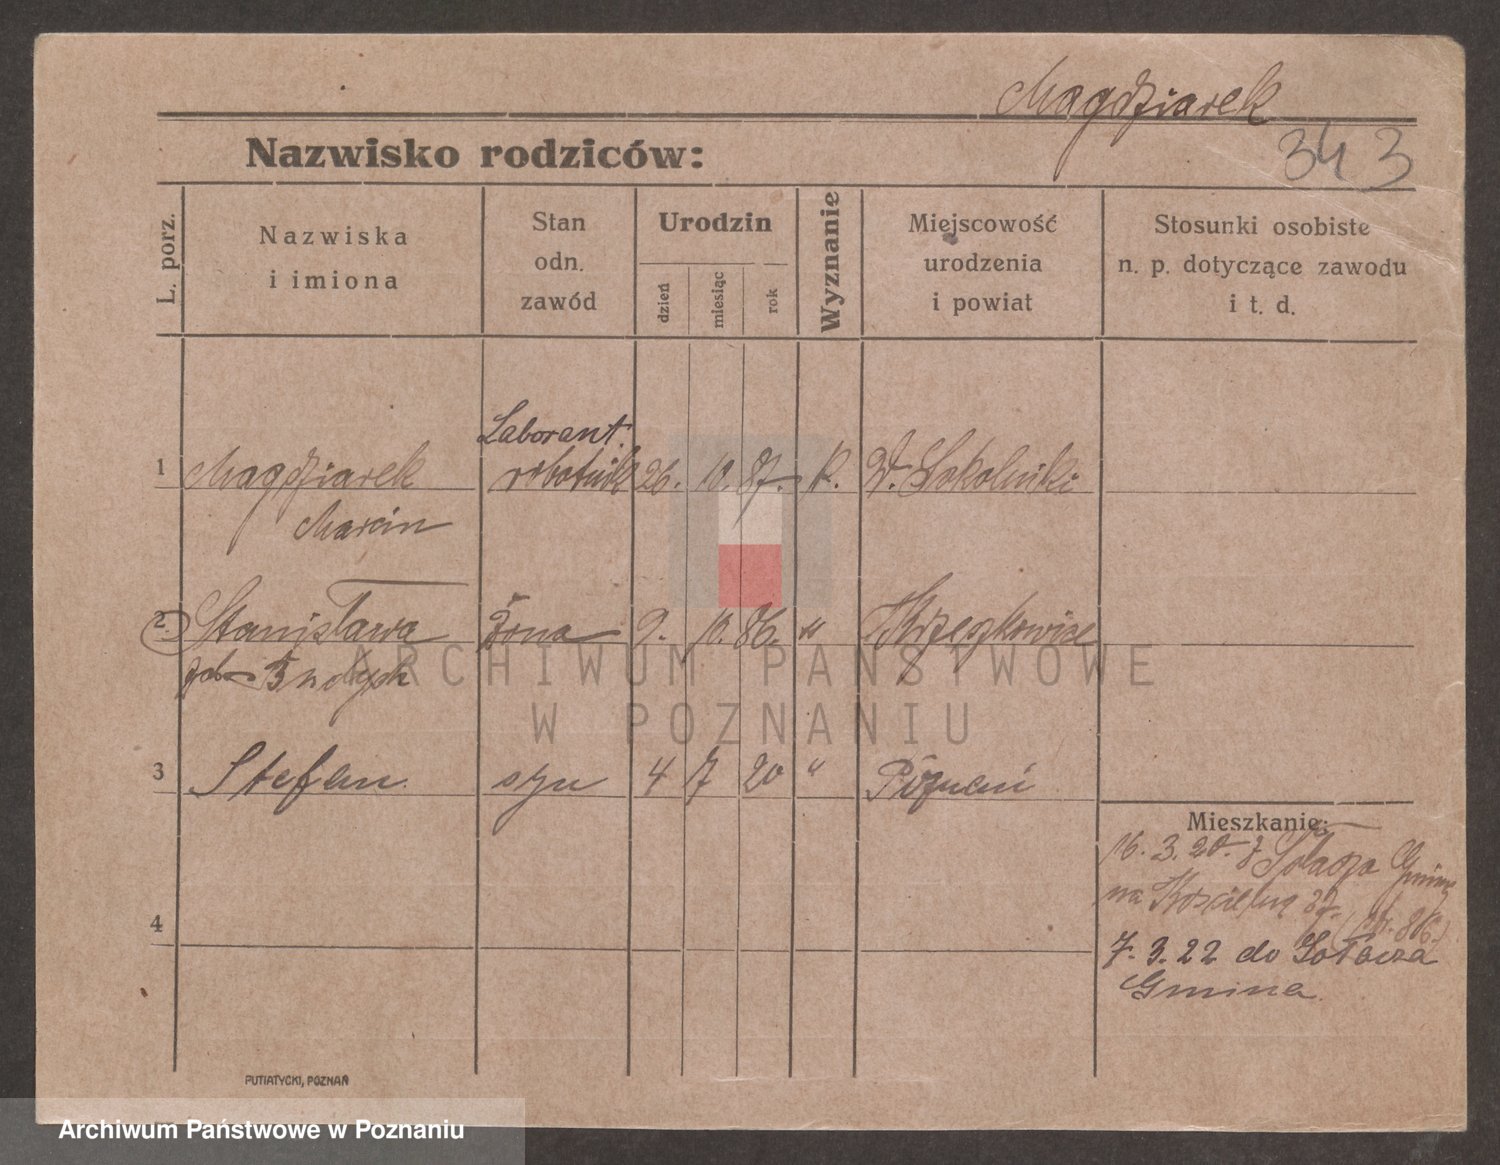 Magdziarek
343
Nazwisko rodziców:
L. porz.
Nazwiska
i imiona
Stan
odn.
zawód
Urodzin
dzień
miesiąc
rok
Wyznanie
Miejscowość
urodzenia
i powiat
Stosunki osobiste
n. p. dotyczące zawodu
i t. d.
Laborant.
1 Magdziarek robotnik 26. 10. 87. k. W. Sokolniki
Marcin
2 Stanisława żona 9. 10. 86. " Krzeszkowice
3 Stefan syn 4 7 20 " Poznań
Mieszkanie:
16. 3. 20. z Sołacza Gminy
na Kościelną 37.
7. 3. 22 do Sołacza
Gmina.
4
PUTIATYCKI, POZNAŃ
ARCHIWUM PAŃSTWOWE
W POZNANIU
Archiwum Państwowe w Poznaniu